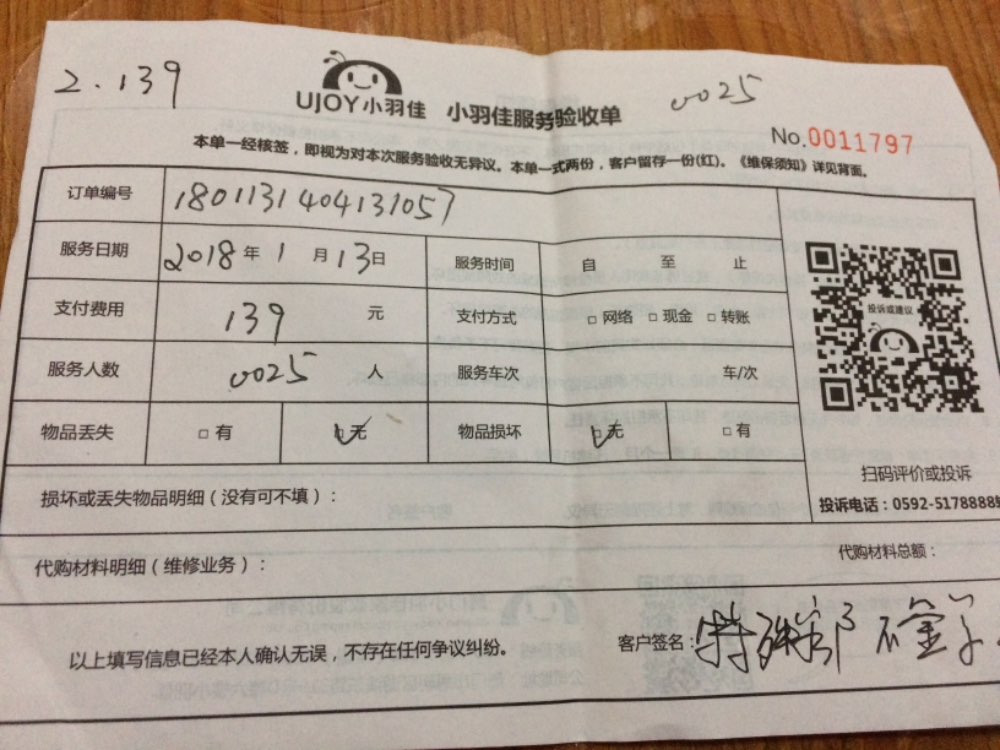 2.139
0025
UJOY小羽佳 小羽佳服务验收单
No.0011797
本单一经核签，即视为对本次服务验收无异议。本单一式两份，客户留存一份(红)。《维保须知》详见背面。
订单编号 1801131404131057
服务日期 2018年1月13日 服务时间 自 至 止
支付费用 139 元 支付方式 □网络 □现金 □转账
服务人数 0025 人 服务车次 车/次
物品丢失 □有 ☑无 物品损坏 ☑无 □有
投诉或建议
扫码评价或投诉
投诉电话：0592-5178888
损坏或丢失物品明细（没有可不填）：
代购材料明细（维修业务）： 代购材料总额：
以上填写信息已经本人确认无误，不存在任何争议纠纷。 客户签名：特殊部 不签字